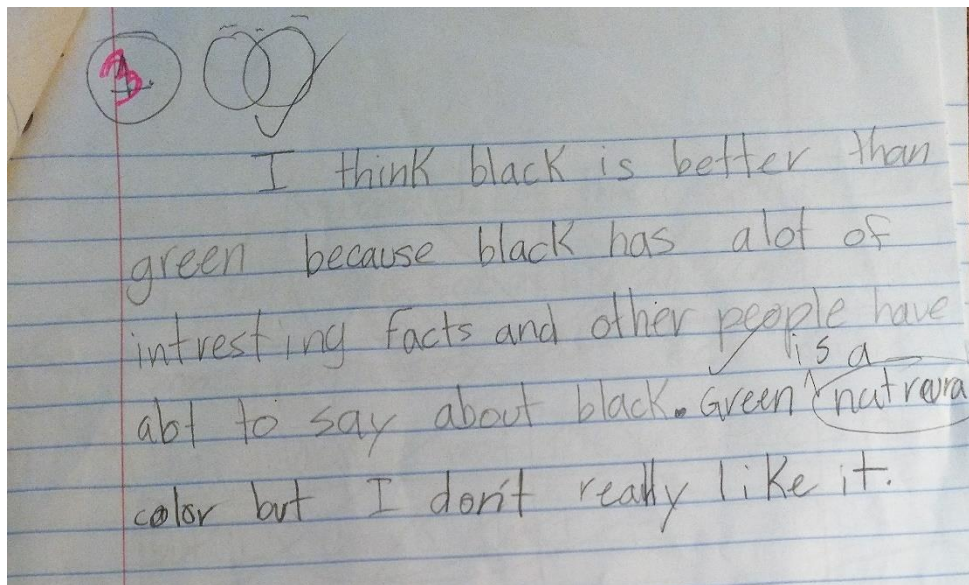 I think black is better than
green because black has alot of
intresting facts and other people have
abt to say about black. Green is a
color but I don't really like it.